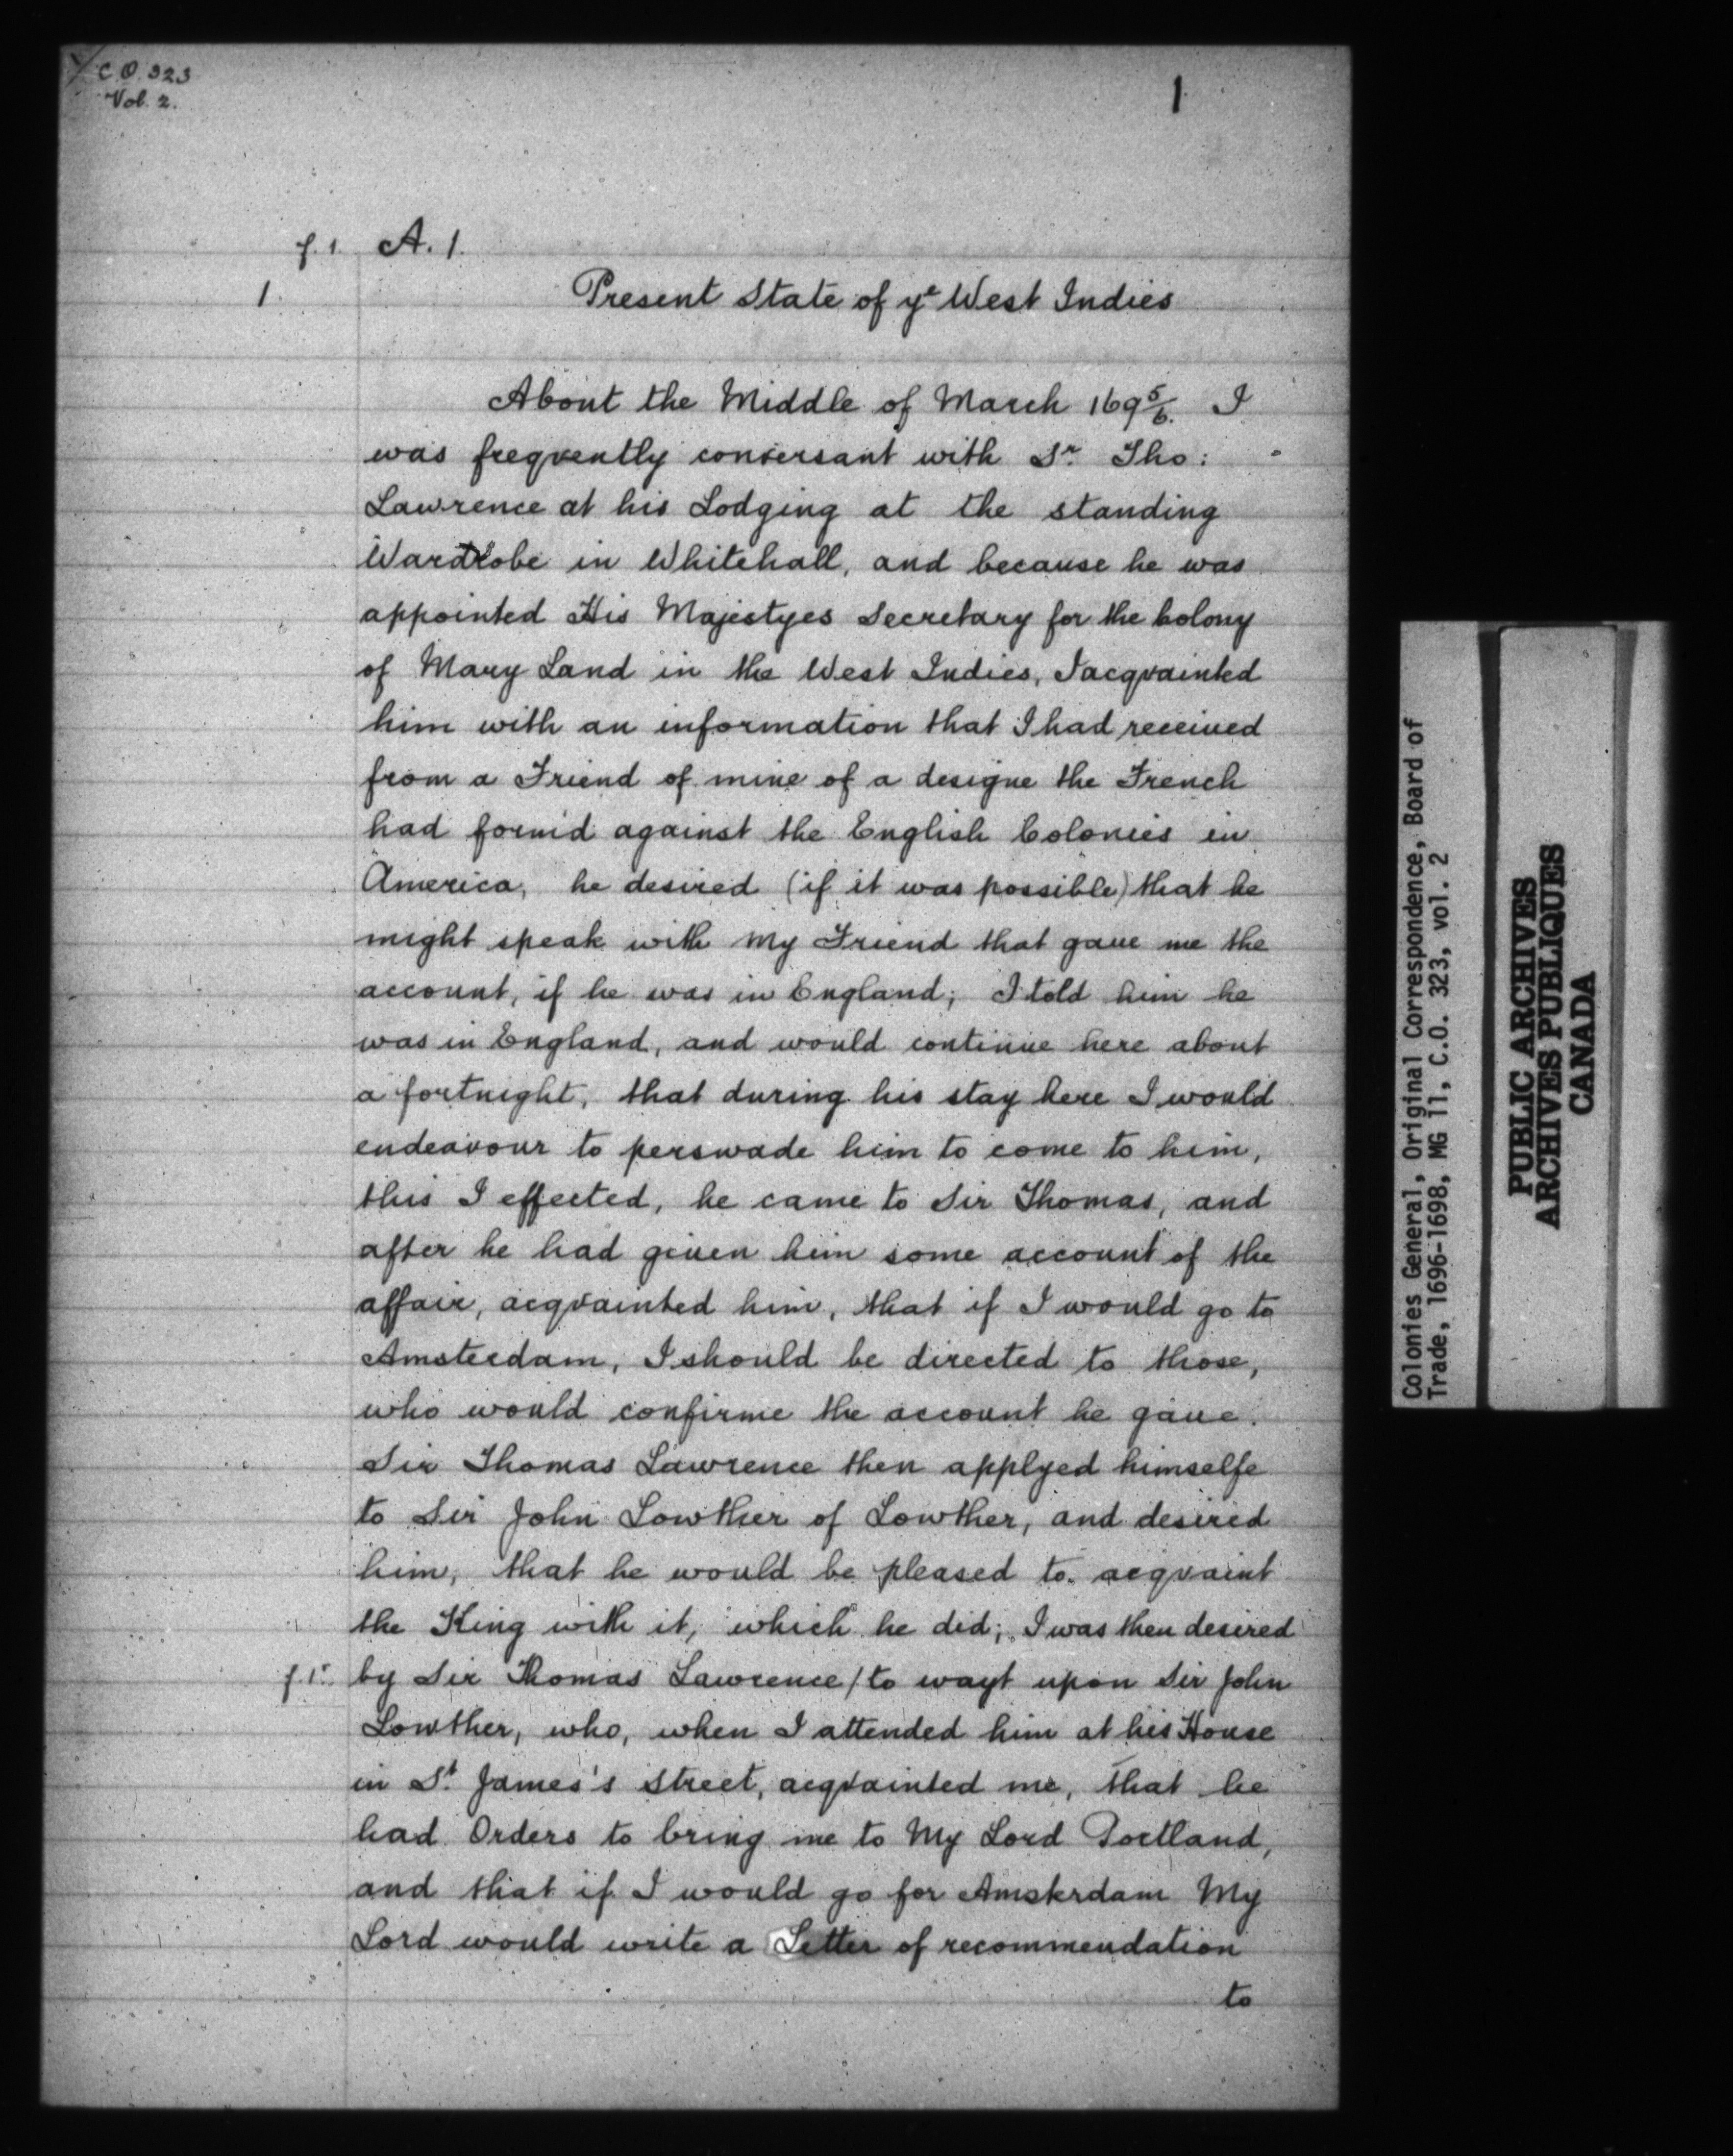 C.O. 323
Vol. 2.
1
f. 1. A. 1.
1
Present State of yᵉ West Indies
About the Middle of March 169⅚. I
was freqvently conversant with Sʳ. Tho:
Lawrence at his Lodging at the standing
Wardrobe in Whitehall, and because he was
appointed His Majestyes Secretary for the Colony
of Mary Land in the West Indies, I acqvainted
him with an information that I had received
from a Friend of mine of a designe the French
had form'd against the English Colonies in
America, he desired (if it was possible) that he
might speak with my Friend that gave me the
account, if he was in England; I told him he
was in England, and would continue here about
a fortnight, that during his stay here I would
endeavour to perswade him to come to him,
this I effected, he came to Sir Thomas, and
after he had given him some account of the
affair, acqvainted him, that if I would go to
Amsterdam, I should be directed to those,
who would confirme the account he gave.
Sir Thomas Lawrence then applyed himselfe
to Sir John Lowther of Lowther, and desired
him, that he would be pleased to acqvaint
the King with it, which he did; I was then desired
f. 1ᵛ. by Sir Thomas Lawrence / to wayt upon Sir John
Lowther, who, when I attended him at his House
in Sᵗ. James's Street, acqvainted me, that he
had Orders to bring me to My Lord Portland,
and that if I would go for Amsterdam My
Lord would write a Letter of recommendation
to
Colonies General, Original Correspondence, Board of
Trade, 1696-1698, MG 11, C.O. 323, vol. 2
PUBLIC ARCHIVES
ARCHIVES PUBLIQUES
CANADA